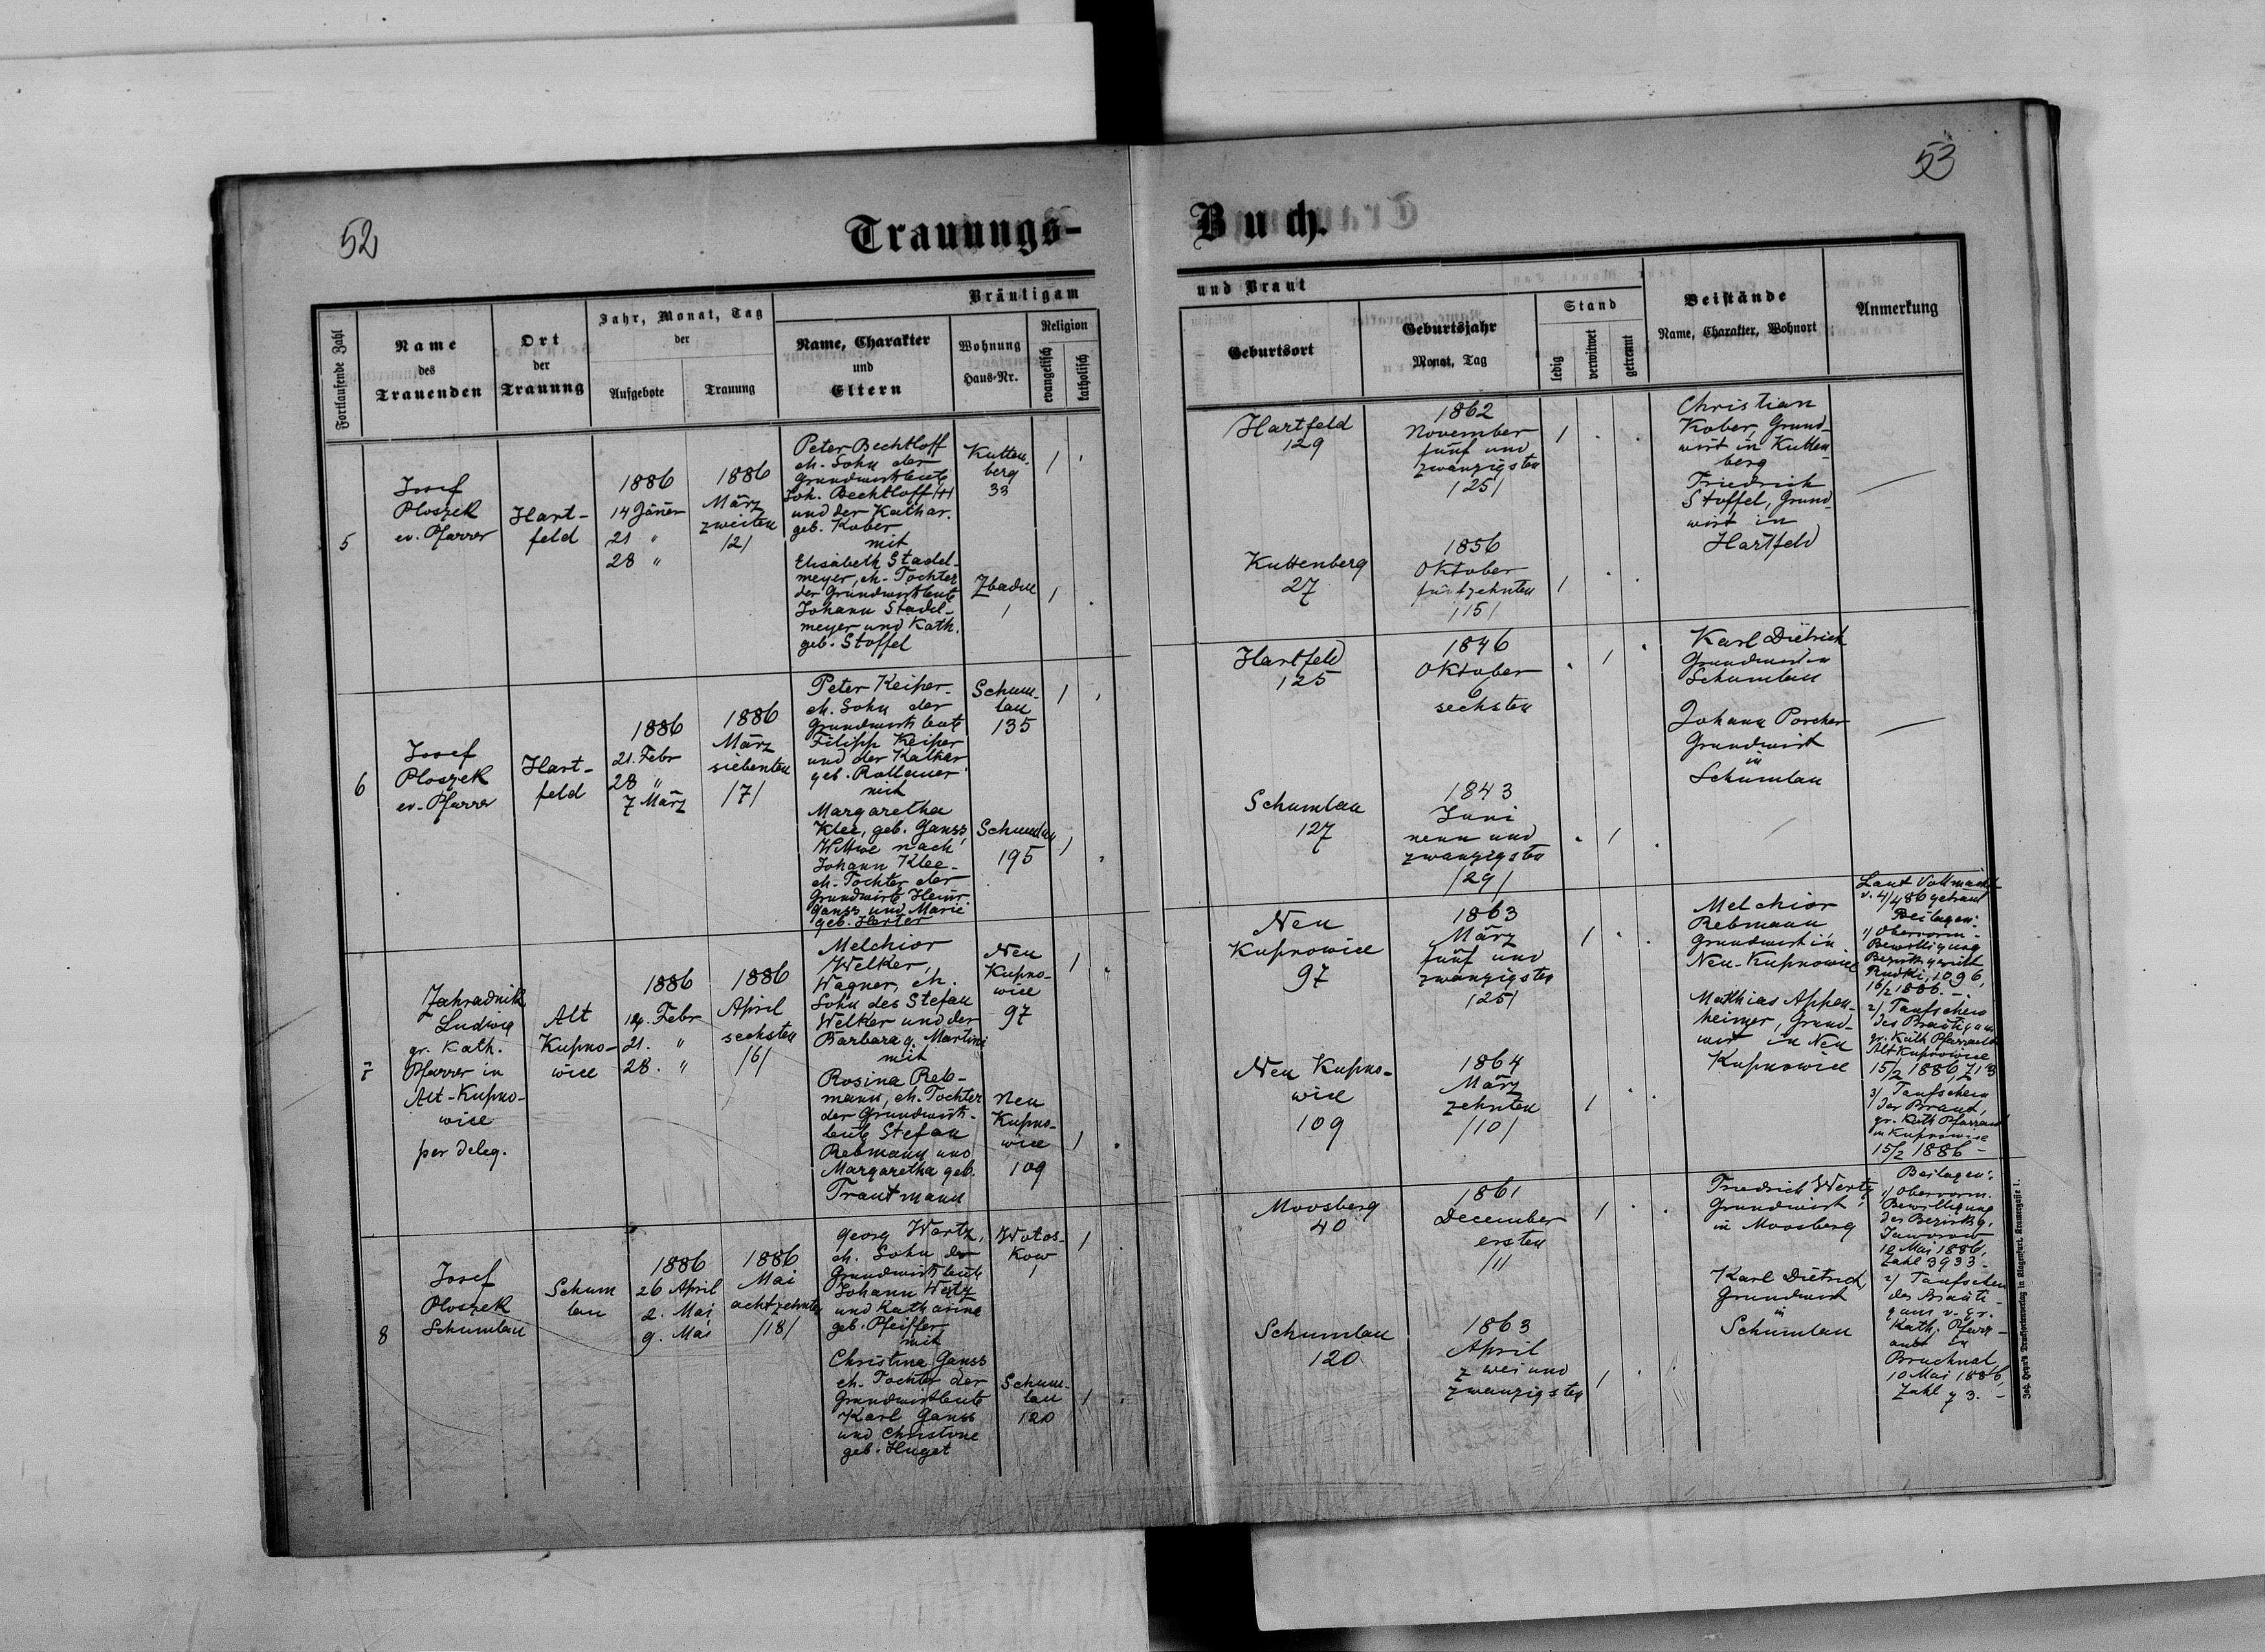 52
Trauungs-
Fortlaufende Zahl
Name
des
Trauenden
Ort
der
Trauung
Jahr, Monat, Tag
der
Aufgebote
Trauung
Bräutigam
Name, Charakter
und
Eltern
Wohnung
Haus-Nr.
Religion
evangelisch
katholisch
5
Josef
Ploszek
ev. Pfarrer
Hart-
feld
1886
14 Jäner
21 "
28 "
1886
März
zweiten
/2/
Peter Bechtloff
eh. Sohn der
Grundwirtsleute
Joh. Bechtloff /+/
und der Kathar.
geb. Kober
mit
Elisabeth Stadel-
meyer, eh. Tochter
der Grundwirtsleute
Johann Stadel-
meyer und Kath.
geb. Stoffel
Kutten-
berg
33
1
Zbadin
1
1
6
Josef
Ploszek
ev. Pfarrer
Hart-
feld
1886
21. Febr
28 "
7 März
1886
März
siebenten
/7/
Peter Keiper
eh. Sohn der
Grundwirtsleute
Filipp Keiper
und der Kathar
geb. Rollauer
mit
Margaretha
Klee, geb. Ganss,
Witwe nach
Johann Klee-
eh. Tochter der
Grundwirte Heinr.
Ganss und Marie
geb. Harter
Schum-
lau
135
1
Schumlau
195
1
7
Zahradnik
Ludwig
gr. kath.
Pfarrer in
Alt-Kupno-
wice
per deleg.
Alt
Kupno-
wice
1886
14. Febr
21. "
28. "
1886
April
sechsten
/6/
Melchior
Welker,
Wagner, eh.
Sohn des Stefan
Welker und der
Barbara g. Martini
mit
Rosina Reb-
mann, eh. Tochter
der Grundwirts-
leute Stefan
Rebmann und
Margaretha geb.
Trautmann
Neu
Kupno-
wice
97
1
Neu
Kupno-
wice
109
1
8
Josef
Ploszek
Schumlau
Schum
lau
1886
26 April
2. Mai
9. Mai
1886
Mai
achtzehnten
/18/
Georg Wertz,
eh. Sohn der
Grundwirtsleute
Johann Wertz
und Katharine
geb. Pfeiffer
mit
Christina Ganss
eh. Tochter der
Grundwirtsleute
Karl Ganss
und Christine
geb. Huget
Wotos-
kow
1
1
Schum-
lau
120
1
53
Buch.
und Braut
Geburtsort
Geburtsjahr
Monat, Tag
Stand
ledig
verwitwet
getrennt
Beistände
Name, Charakter, Wohnort
Anmerkung
Hartfeld
129
1862
November
fünf und
zwanzigsten
/25/
1
Christian
Kober, Grund-
wirt in Kutten-
berg
Friedrich
Stoffel, Grund-
wirt in
Hartfeld
Kuttenberg
27
1856
Oktober
fünfzehnten
/15/
1
Hartfeld
125
1846
Oktober
6
sechsten
1
Karl Dietrich
Grundwirt in
Schumlau
Johann Porcher
Grundwirt
in
Schumlau
Schumlau
127
1843
Juni
neun und
zwanzigsten
/29/
1
Neu
Kupnowice
97
1863
März
fünf und
zwanzigsten
/25/
1
Melchior
Rebmann,
Grundwirt in
Neu-Kupnowice
Matthias Appen-
heimer, Grund-
wirt in Neu
Kupnowice
Laut Vollmacht
v. 4/4 86 getraut
Beilagen:
1/ Obervorm.
Bewilligung
Bezirksgericht
Rudki, 1096,
16/2 1886. -
2/ Taufschein
des Bräutigam
gr. kath Pfarramt
Alt Kupnowice
15/2 1886, Z 13
3/ Taufschein
der Braut,
gr. Kath Pfarramt
in Kupnowice
15/2 1886 -
Neu Kupno-
wice
109
1864
März
zehnten
/10/
1
Moosberg
40
1861
December
ersten
/1/
1
Friedrich Wertz
Grundwirt,
in Moosberg
Karl Dietrich,
Grundwirt
in
Schumlau
Beilagen:
1/ Obervorm.
Bewilligung
des Bezirksg.
Jaworow
10 Mai 1886,
Zahl 3933 -
2/ Taufschein
des Bräuti-
gam v. gr.
Kath. Pfarr-
amt in
Bruchnal
10 Mai 1886,
Zahl 73. -
Schumlau
120
1863
April
zwei und
zwanzigsten
1
Joh. Heyn's Drucksortenverlag in Klagenfurt, Kramergasse 1.